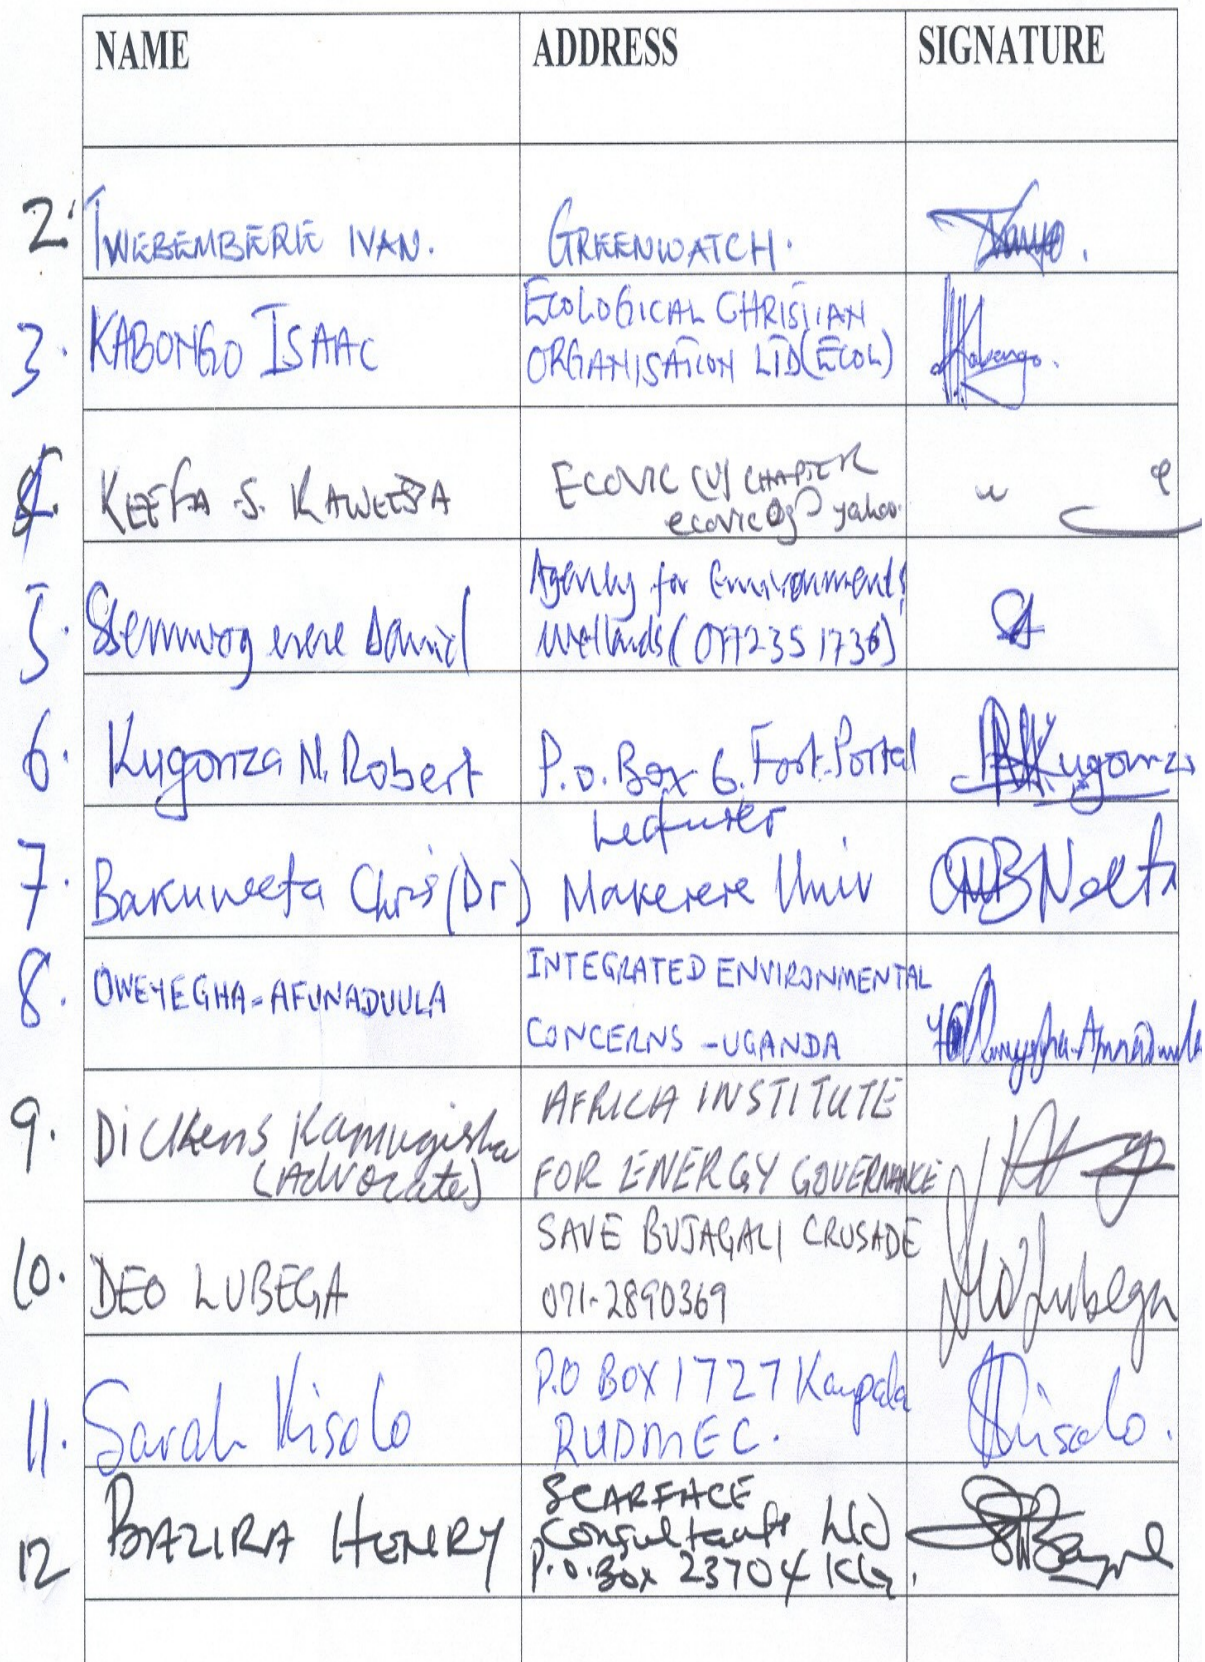 NAME ADDRESS SIGNATURE
2. TWEBEMBERE IVAN. GREENWATCH.
3. KABONGO ISAAC ECOLOGICAL CHRISTIAN
ORGANISATION LTD (ECOL)
Kabongo.
4. KEEFA S. KAWEESA ECOVIC (U) CHAPTER
yahoo.
5. Daniel Agency for Environment &
Wetlands (0772351736)
6. Kugonza N. Robert P.O. Box 6. Fort-Portal Kugonza
7. Bakuneeta Chris (Dr) Lecturer
Makerere Univ
8. OWEYEGHA-AFUNADUULA INTEGRATED ENVIRONMENTAL
CONCERNS - UGANDA
9. Dickens Kamugisha AFRICA INSTITUTE
(Advocate) FOR ENERGY GOVERNANCE
10. DEO LUBEGA SAVE BUJAGALI CRUSADE
071-2890369
Deo Lubega
11. Sarah Kisolo P.O BOX 1727 Kampala
RUDMEC.
Kisolo.
12 BAZIRA HENRY SCARFACE
Consultants Ltd
P.O. Box 23704 KLA.